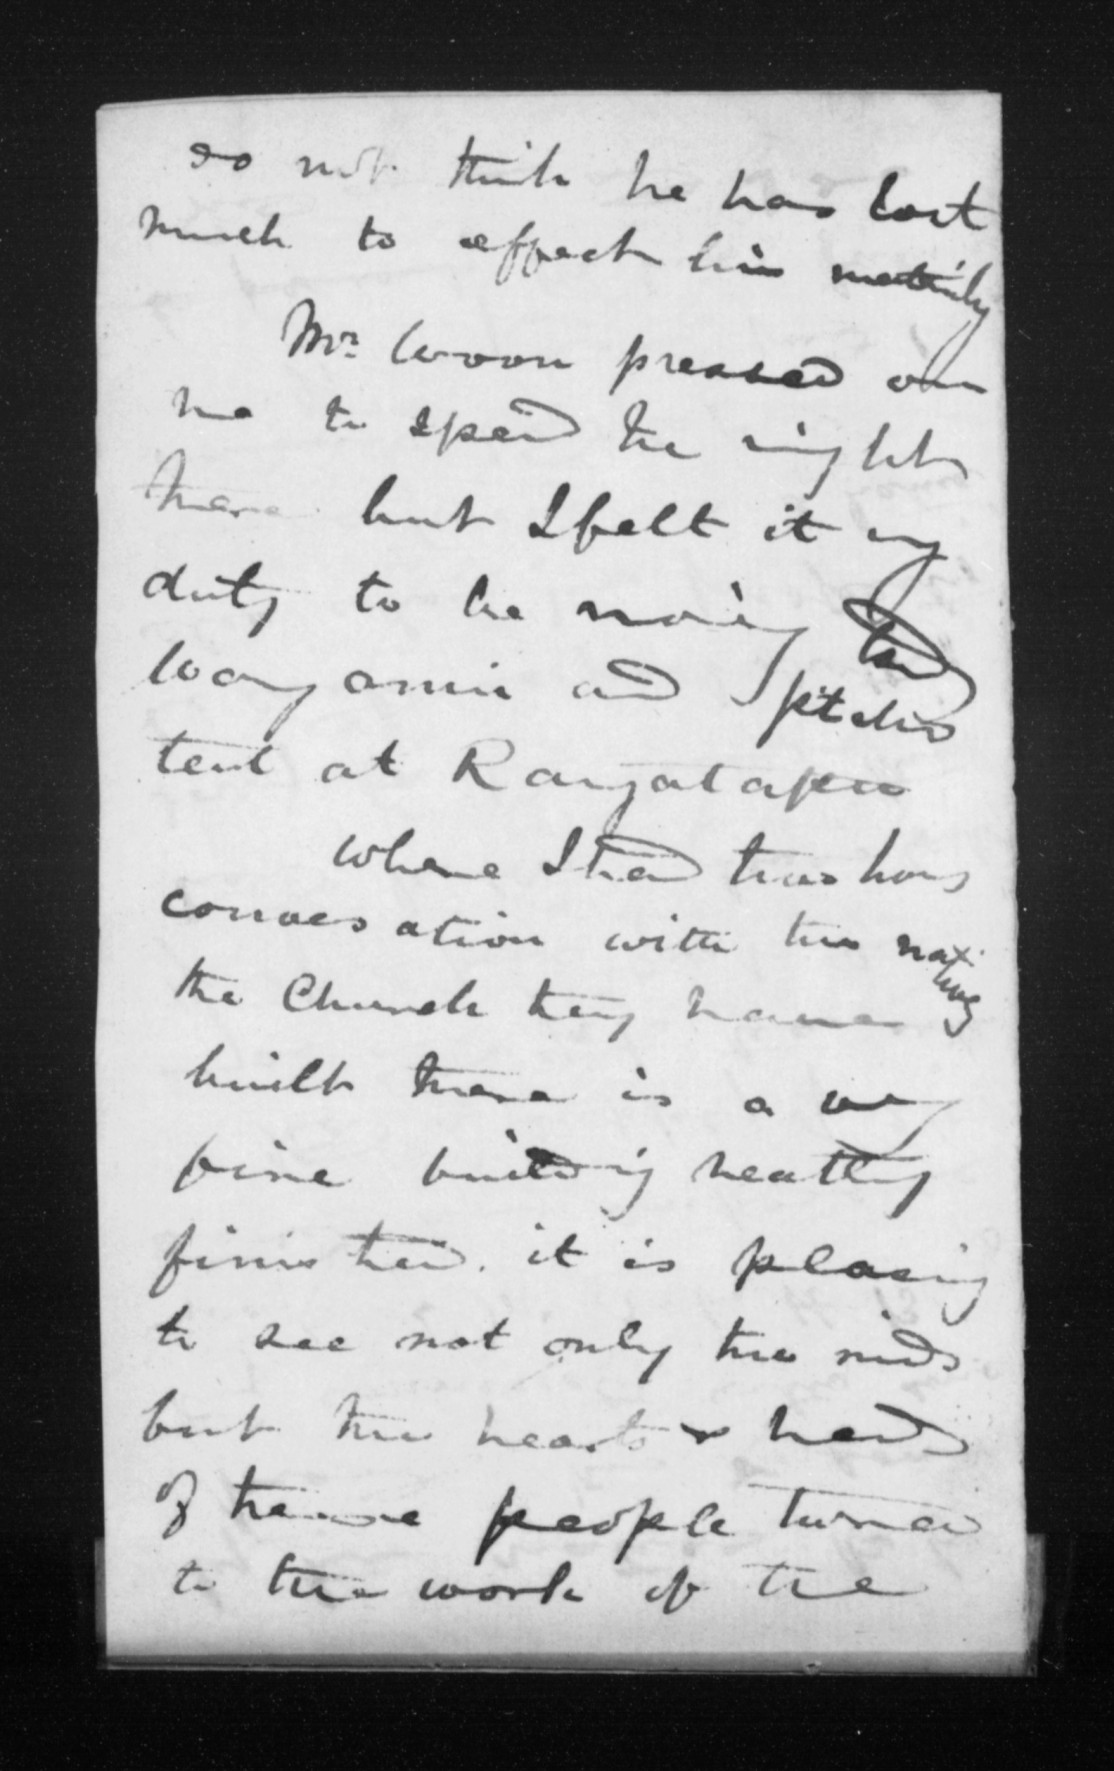 do not think he has lost
much to effect him materialy
Mr. Woon pressed on
me to spend the night
there but I felt it my
duty to be moving tord
Wanganui and pitched
tent at Rangatapu
where I had two hours
conversation with the natives
the Church they have
built there is a very
fine building neatly
finished. it is pleasing
to see not only the minds
but the hearts & hands
of these people turned
to the work of the